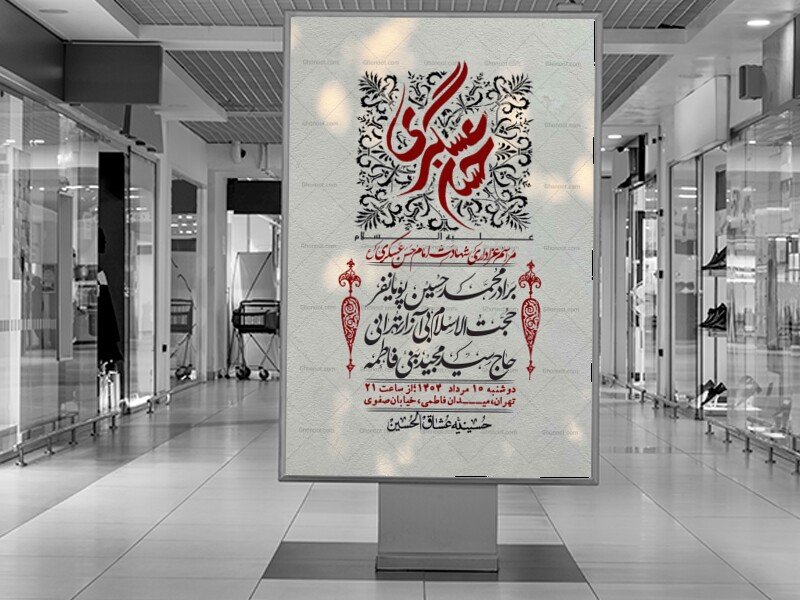 حسن عسکری
علیه السلام
مراسم عزاداری شهادت امام حسن عسکری
برادر محمدحسین پویانفر
حجت الاسلام بی آزار تهرانی
حاج سید مجید بنی فاطمه
دوشنبه ۱۵ مرداد ۱۴۰۴؛از ساعت ۲۱
تهران،میدان فاطمی،خیابان صفوی
حسینیه عشاق الحسین
Ghonoot.com